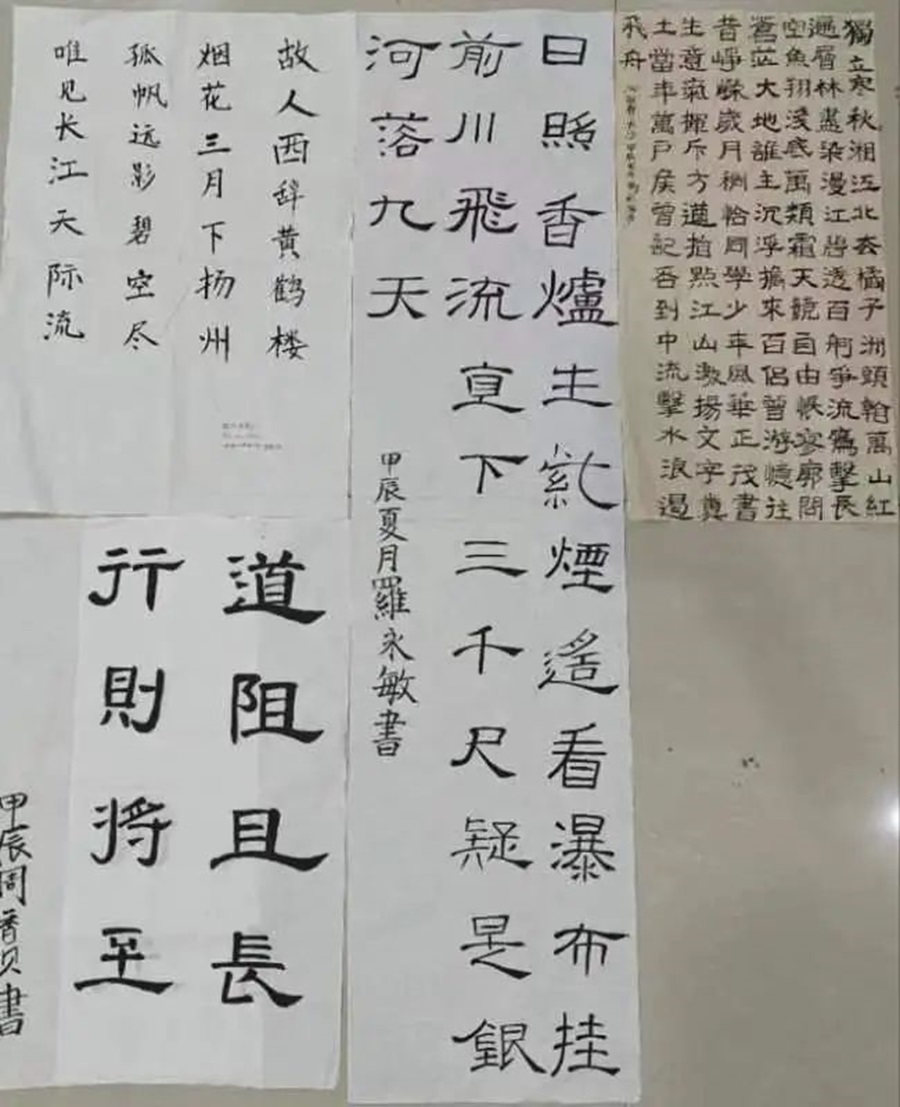 獨立寒秋湘江北去橘子洲頭翰萬山紅
遍層林盡染漫江碧透百舸爭流鷹擊長
空魚翔淺底萬類霜天競自由悵寥廓問
蒼茫大地誰主沉浮攜來百侶曾游憶往
昔崢嶸歲月稠恰同學少年風華正茂書
生意氣揮斥方遒指點江山激揚文字糞
土當年萬戶侯曾記否到中流擊水浪遏
飛舟
日照香爐生紫煙遙看瀑布挂
前川飛流直下三千尺疑是銀
河落九天
甲辰夏月羅永敏書
故人西辞黄鹤楼
烟花三月下扬州
孤帆远影碧空尽
唯见长江天际流
道阻且長
行則將至
甲辰周香贝書